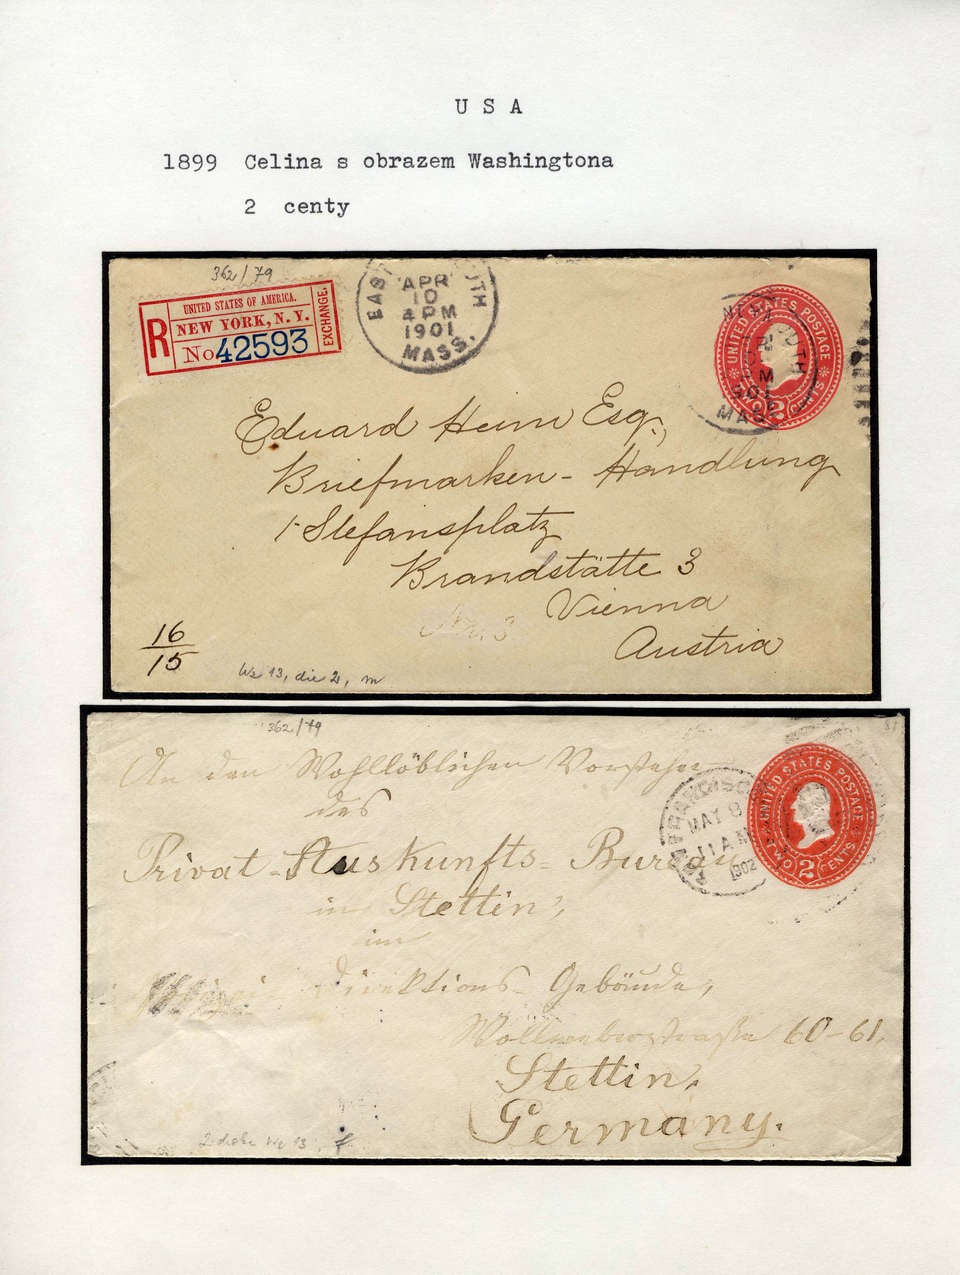 USA
1899 Celina s obrazem Washingtona
2 centy
362/79
R
UNITED STATES OF AMERICA.
NEW YORK, N.Y.
No 42593
EXCHANGE.
APR
10
4 PM
1901
MASS.
UNITED STATES POSTAGE
TWO 2 CENTS
MASS
Eduard Heim Esq.,
Briefmarken - Handlung
1 Stefansplatz
Brandstätte 3
Vienna
Austria
16
15
Wz 13, die 2, m
362/79
An den Wohllöblichen Vorsteher
des
Privat-Auskunfts-Bureau
in Stettin,
im
Direktions-Gebäude,
Wollweberstraße 60-61,
Stettin,
Germany.
SAN FRANCISCO
MAY 8
11 AM
1902
UNITED STATES POSTAGE
TWO 2 CENTS